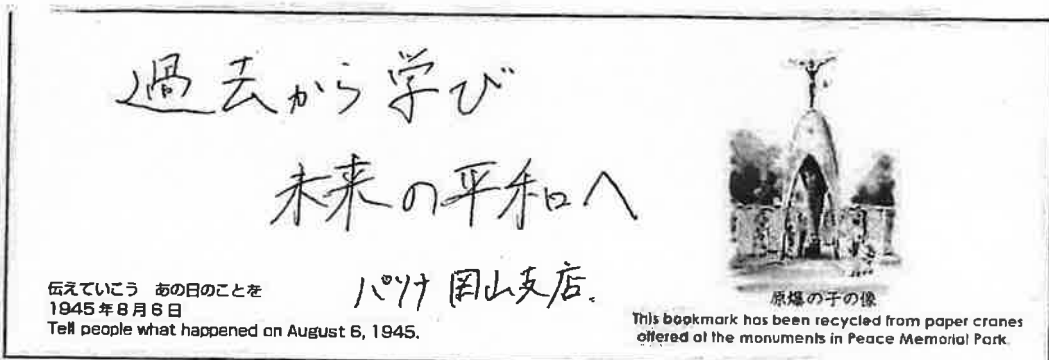 過去から学び
未来の平和へ
パソナ 岡山支店.
伝えていこう あの日のことを
1945年8月6日
Tell people what happened on August 6, 1945.
原爆の子の像
This bookmark has been recycled from paper cranes
offered at the monuments in Peace Memorial Park.